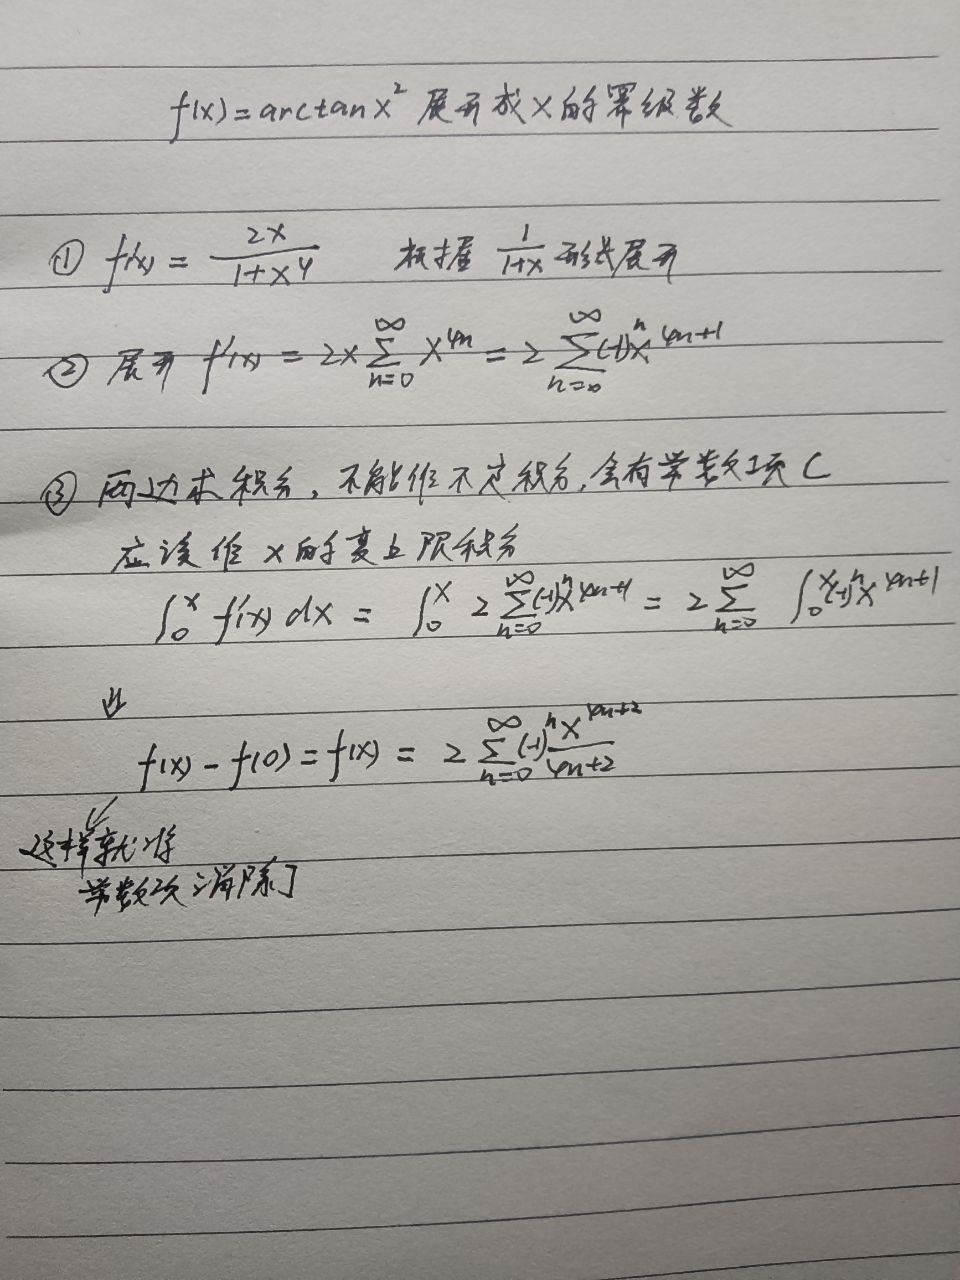 f(x)=arctanx² 展开成x的幂级数
① f'(x) = 2x/(1+x⁴) 根据 1/(1+x) 形式展开
② 展开 f'(x) = 2x∑_{n=0}^{∞} x^{4n} = 2∑_{n=0}^{∞}(-1)^n x^{4n+1}
③ 两边求积分,不能作不定积分,含有常数项C
应该作x的变上限积分
∫₀ˣ f'(x) dx = ∫₀ˣ 2∑_{n=0}^{∞}(-1)^n x^{4n+1} = 2∑_{n=0}^{∞} ∫₀ˣ(-1)^n x^{4n+1}
⇓
f(x) - f(0) = f(x) = 2∑_{n=0}^{∞}(-1)^n x^{4n+2}/(4n+2)
这样就将
常数项消除了